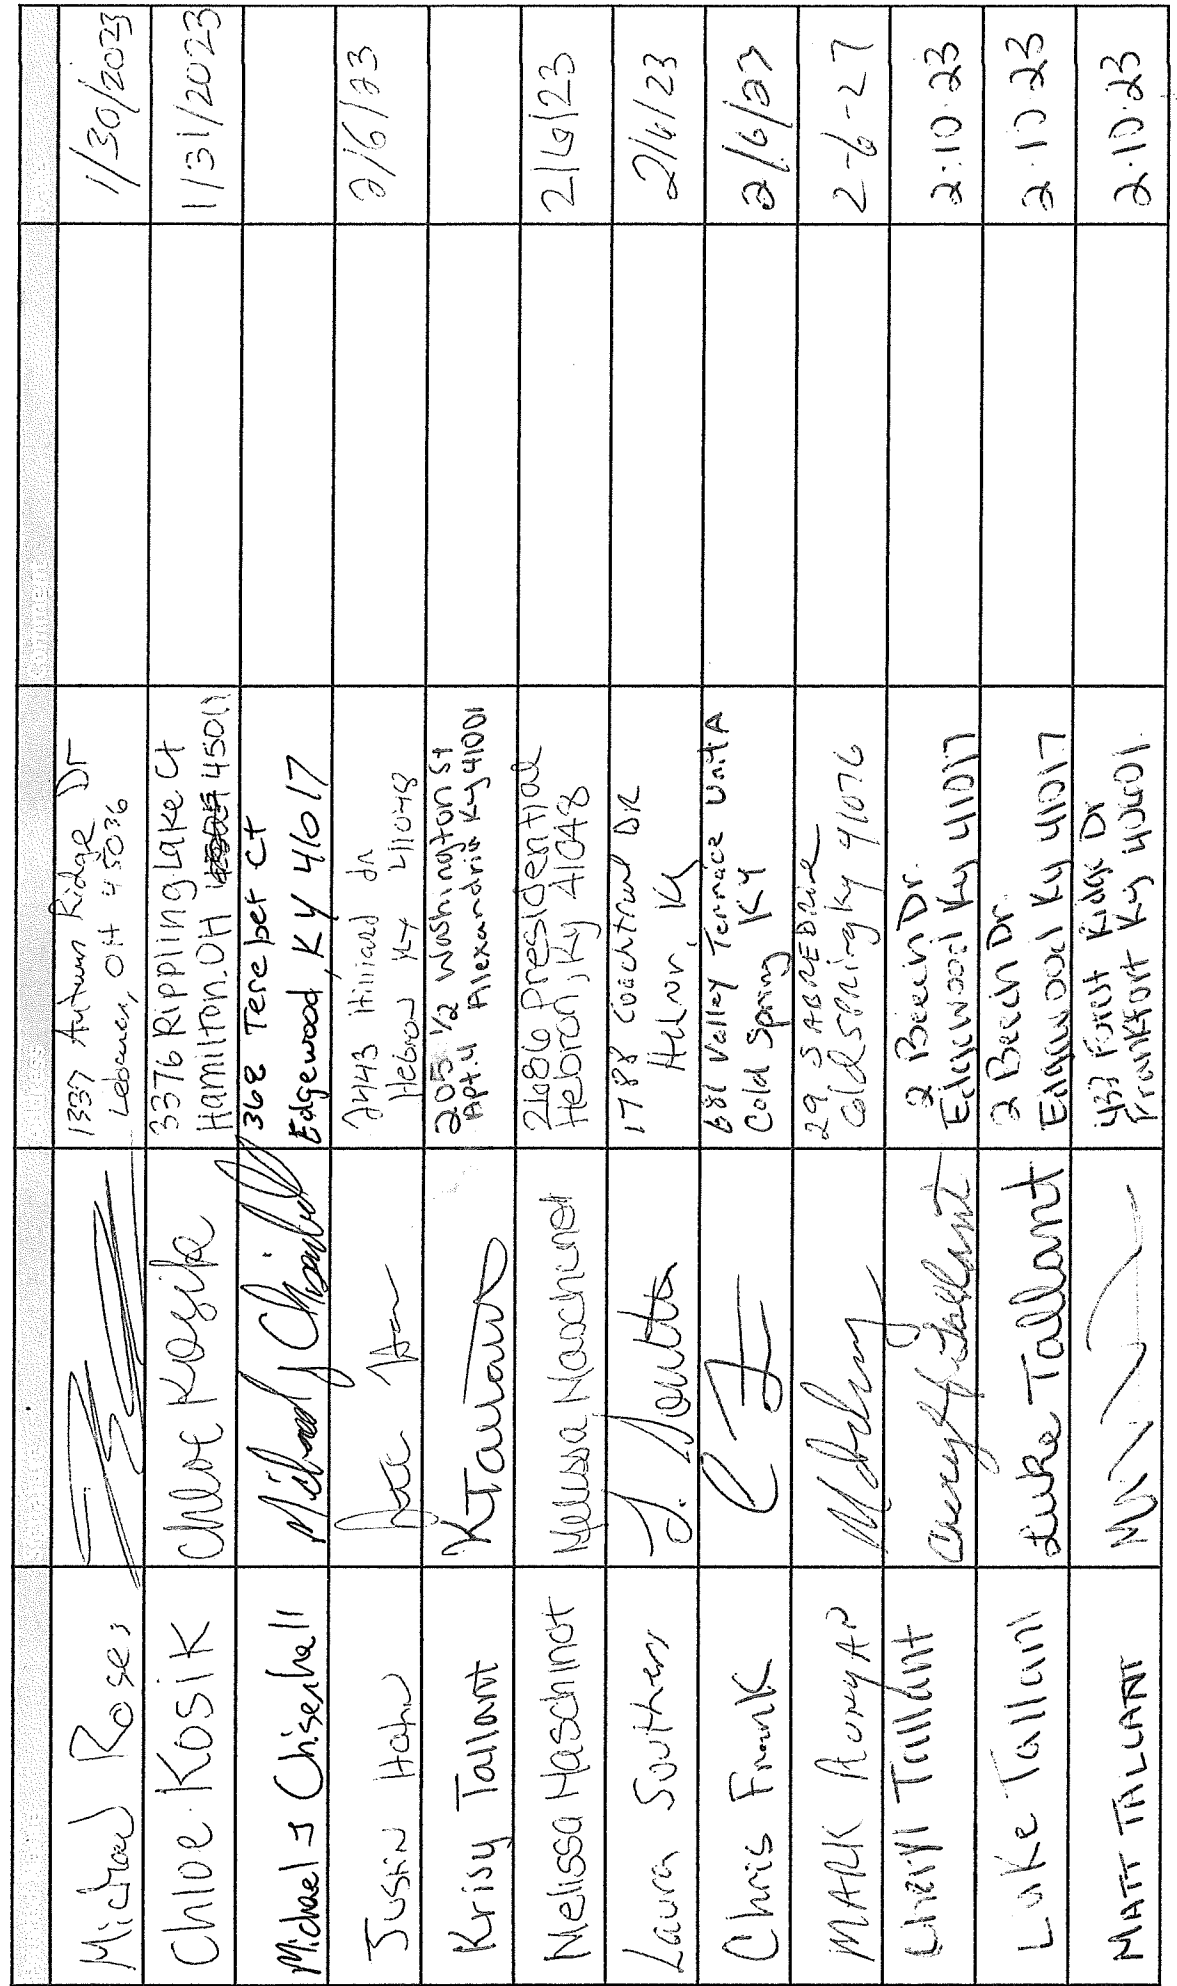 Michael Roses
1337 Autumn Ridge Dr
Lebanon, OH 45036
1/30/2023
Chloe Kosik
Chloe Kosik
3376 Rippling Lake Ct
Hamilton, OH 45011
1/31/2023
Michael J Chisenhall
Michael J Chisenhall
368 Terebet Ct
Edgewood, KY 41017
Justin Hahn
2443 Hilliard dr
Hebron KY 41048
2/6/23
Krisy Tallant
K Tallant
205 1/2 Washington St
Apt.4 Alexandria Ky 41001
Melissa Haschinot
Melissa Haschinot
2686 Presidential
Hebron, Ky 41048
2/6/23
Laura Southers
1788 Coachtrail DR
Hebron, Ky
2/6/23
Chris Frank
681 Valley Terrace Unit A
Cold Spring KY
2/6/23
MARK RUNYAN
29 SABRE DRIVE
Cold Spring Ky 41076
2-6-27
Cheryl Tallant
Cheryl Tallant
2 Beech Dr.
Edgewood Ky 41017
2.10.23
Luke Tallant
Luke Tallant
2 Beech Dr.
Edgewood Ky 41017
2.10.23
MATT TALLANT
433 Forest Ridge Dr
Frankfort Ky 40601.
2.10.23